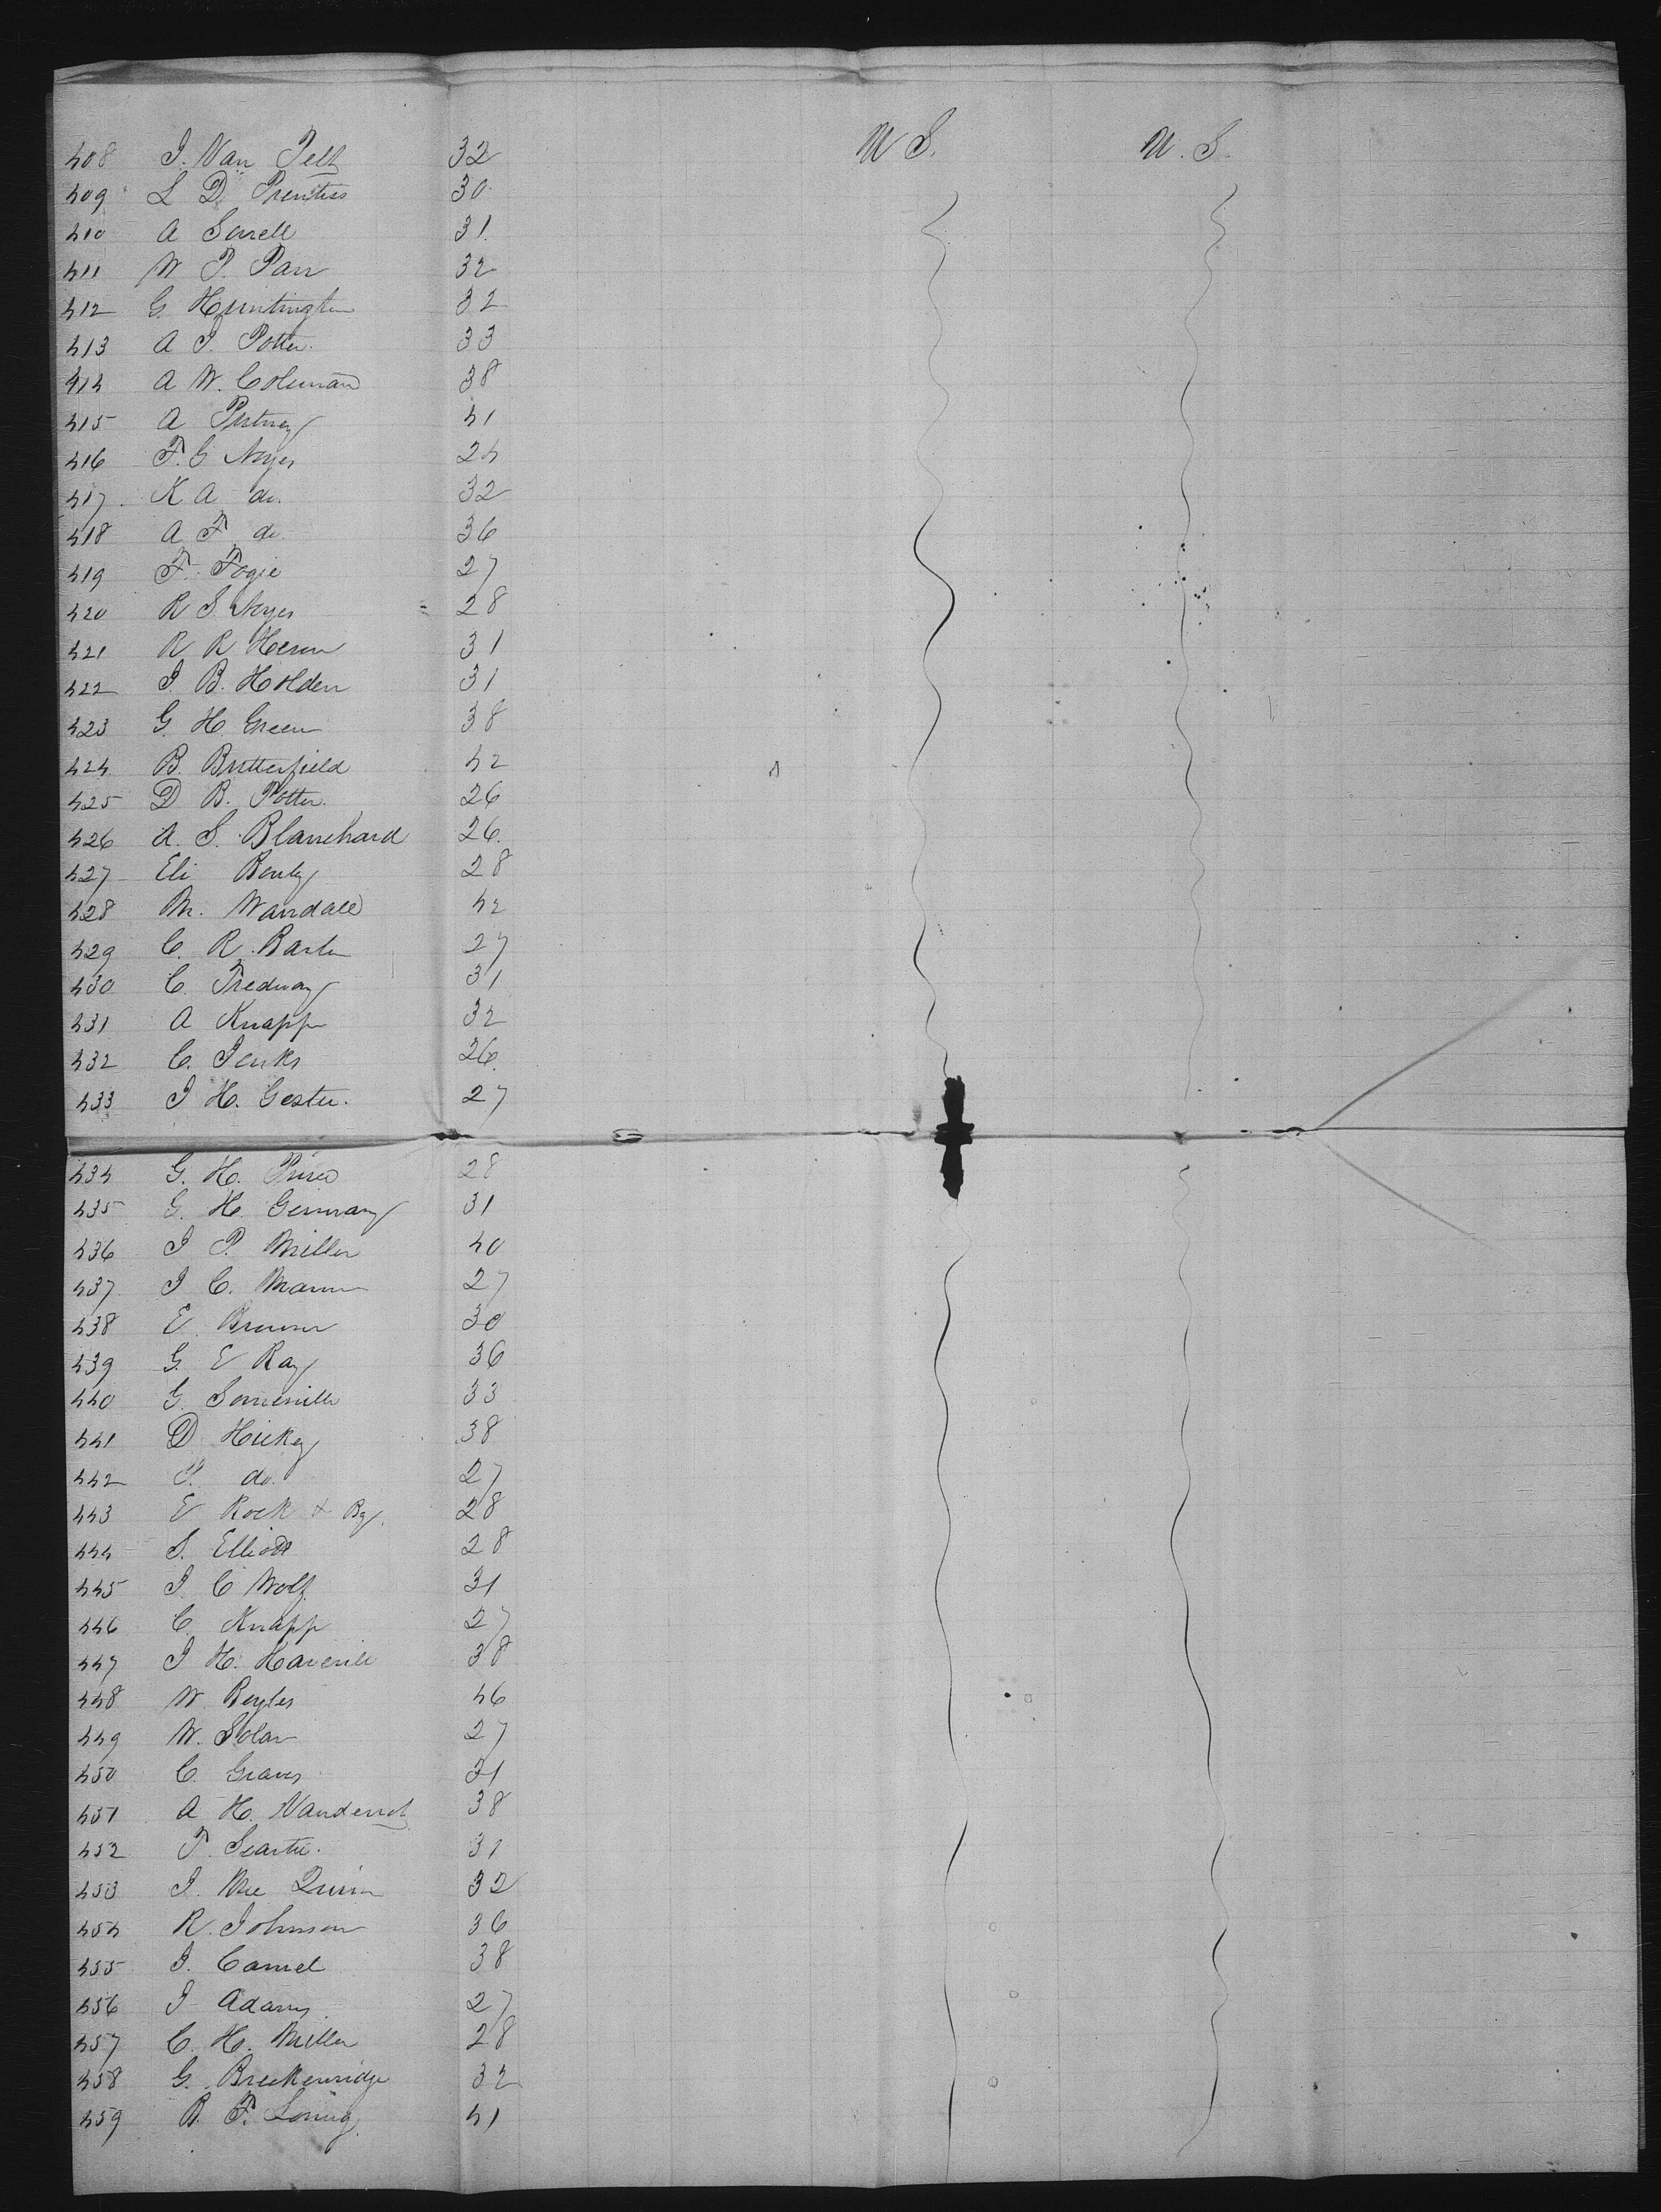 408 J. Van Pelt 32 U S. U. S.
409 L D. Prentiss 30
410 A Sewell 31
411 W P. Parr 32
412 G. Huntington 32
413 A J. Potter 33
414 A W. Coleman 38
415 A Putney 41
416 F. G Noyes 24
417 K A do. 32
418 A F do 36
419 F. Fogie 27
420 R S. Noyes 28
421 R R Heron 31
422 J. B. Holden 31
423 G. H. Green 38
424 B. Butterfield 42
425 D B. Potter. 26
426 A. S. Blanchard 26.
427 Eli 28
428 M. Wandall 42
429 C. R. 27
430 C. Tredway 31
431 A Knapp 32
432 C. Jenks 26.
433 J H. Gester. 27
434 G. H. 28
435 G. H. Germany 31
436 J P. Miller 40
437 J C. Mann 27
438 E. 30
439 G. E Ray 36
440 G. Somerville 33
441 D Hickey 38
442 P. do. 27
443 E Rock 28
444 S. Elliott 28
445 J. C Wolf 31
446 C. Knapp 27
447 J H. Haverill 38
448 W. Boyles 46
449 W. Solar 27
450 C. Graves 31
451 A H. 38
452 T. 31
453 J. Mc Quinn 32
454 R. Johnson 36
455 J. Camel 38
456 J Adams 27
457 C. H. Miller 28
458 G. Breckenridge 32
459 B. F. Loring 41